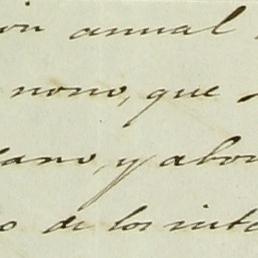 ion annual
nono, que
lano, y abon
o de los inte